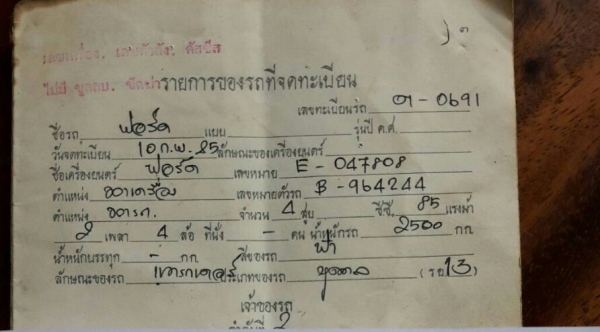 เลขเครื่อง, เลขตัวถัง, คัสซีส
ไม่มี ขูดลบ. ขีดฆ่า
รายการของรถที่จดทะเบียน
เลขทะเบียนรถ ต-0691
ชื่อรถ ฟอร์ด แบบ รุ่นปี ค.ศ.
วันจดทะเบียน 10 ก.พ. 25 ลักษณะของเครื่องยนตร์
ชื่อเครื่องยนตร์ ฟอร์ด เลขหมาย E-047808
ตำแหน่ง ขวาเครื่อง เลขหมายตัวรถ B-964244
ตำแหน่ง ขวารถ จำนวน 4 สูบ ซีซี. 85 แรงม้า
2 เพลา 4 ล้อ ที่นั่ง - คน น้ำหนักรถ 2500 กก.
น้ำหนักบรรทุก - กก. สีของรถ ฟ้า
ลักษณะของรถ แทรกเตอร์ ประเภทของรถ บุคคล (รย 13)
เจ้าของรถ
ลำดับที่ 2